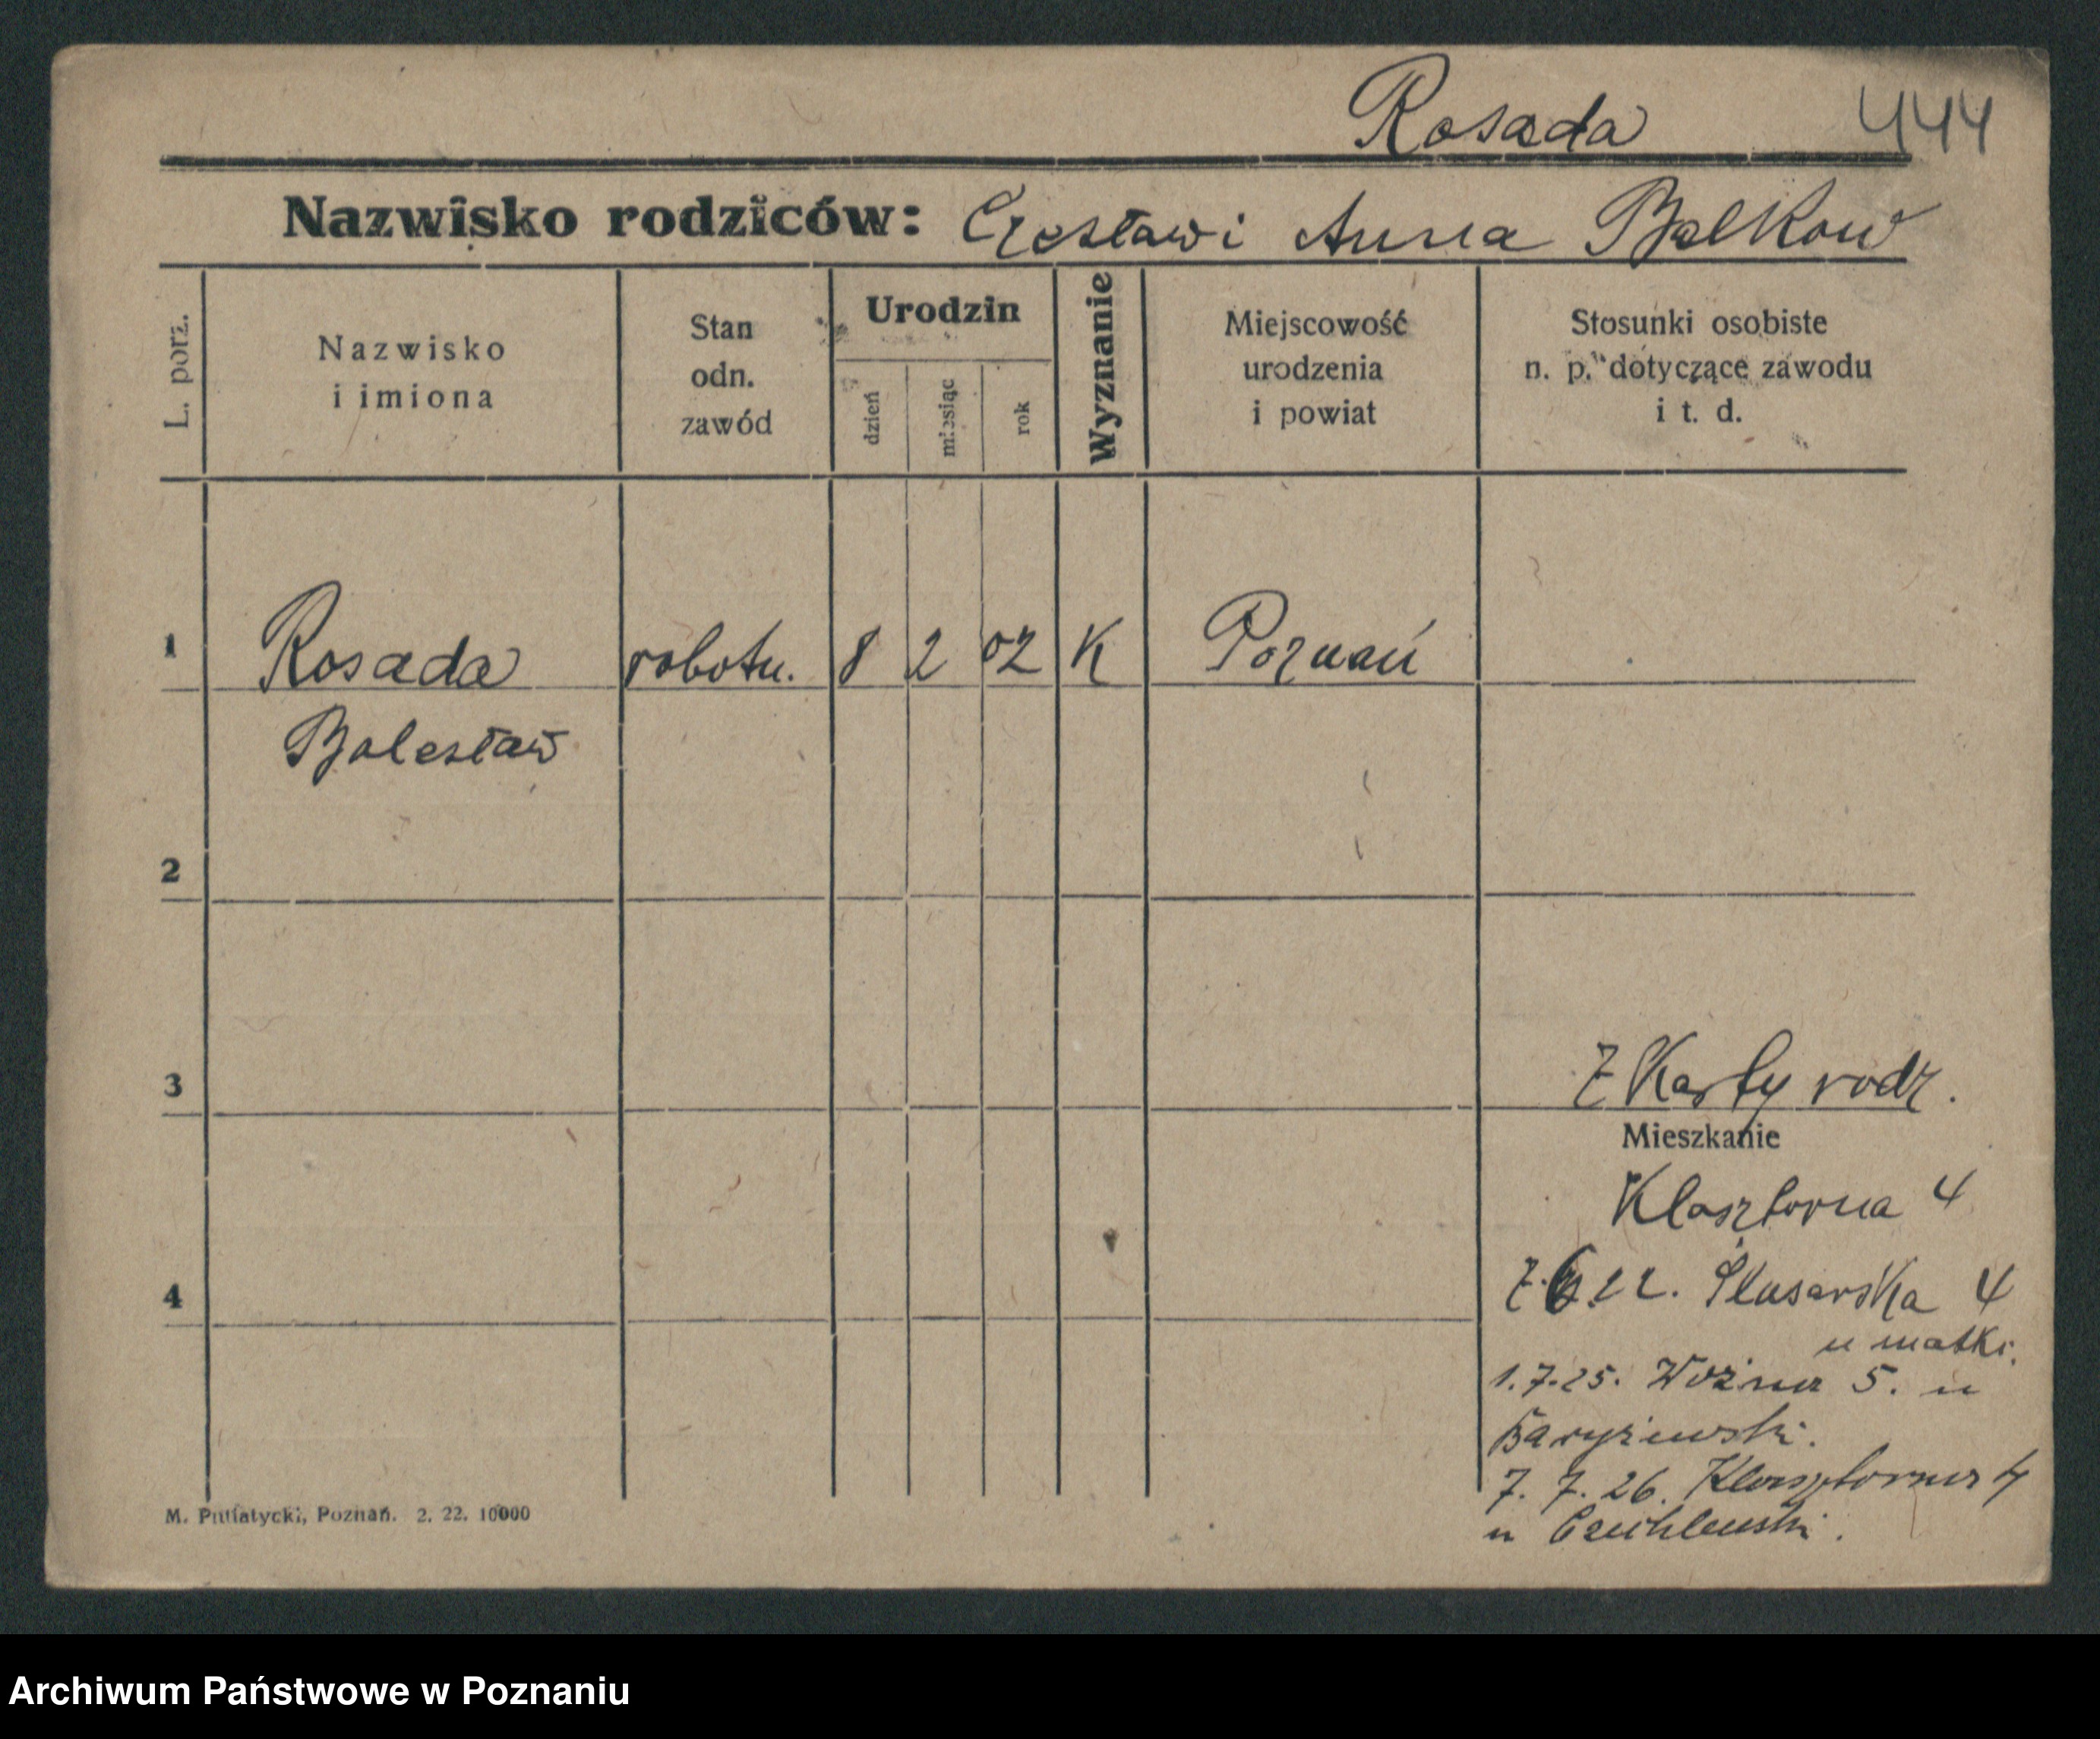 Rosada 444
Nazwisko rodziców: Czesław i Anna Balkow
L. porz.
Nazwisko
i imiona
Stan
odn.
zawód
Urodzin
dzień
miesiąc
rok
Wyznanie
Miejscowość
urodzenia
i powiat
Stosunki osobiste
n. p. dotyczące zawodu
i t. d.
1 Rosada robotn. 8 2 02 K Poznań
Bolesław
2
3 Z Karty rodz.
Mieszkanie
Klasztorna 4
4 22. Ślusarska 4
u matki.
1.7.25. Woźna 5. u
7. 7. 26. Klasztorna 4
u
M. Putiatycki, Poznań. 2. 22. 10000
Archiwum Państwowe w Poznaniu